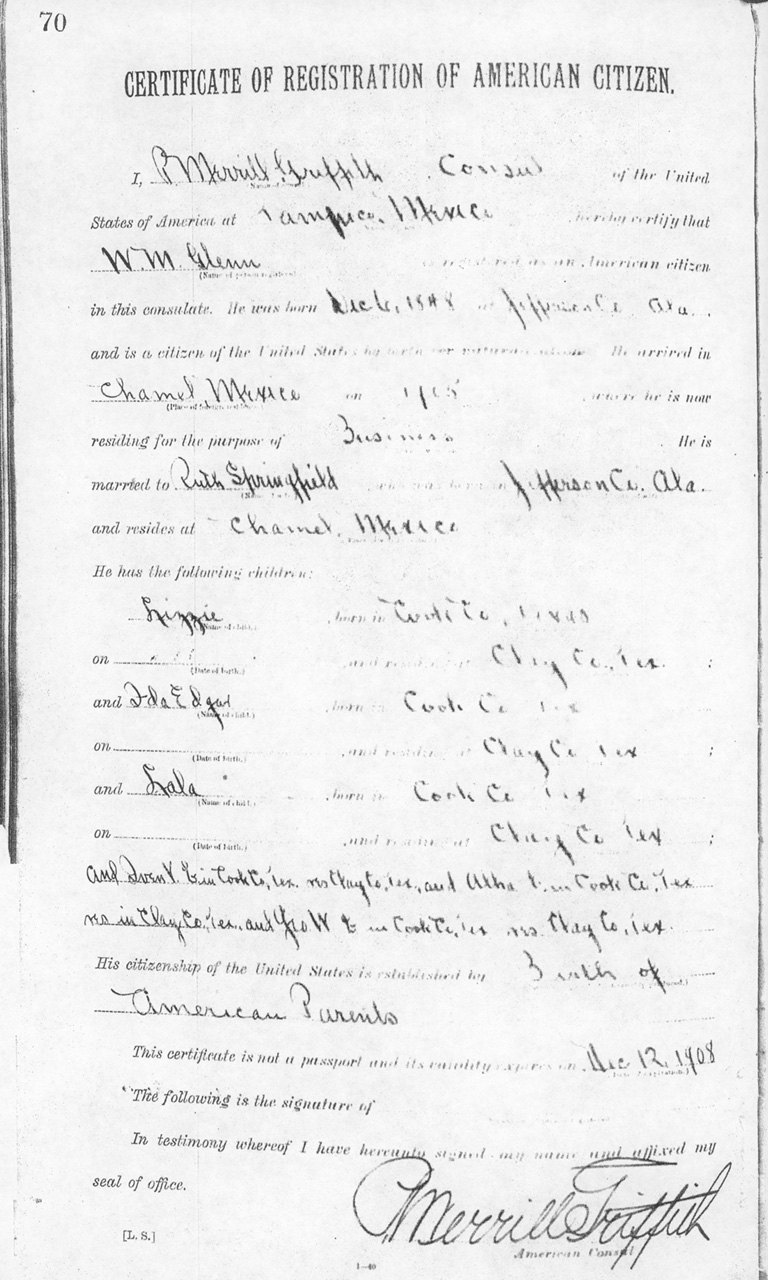 70
CERTIFICATE OF REGISTRATION OF AMERICAN CITIZEN.
I, P Merrill Griffith Consul of the United
States of America at Tampico, Mexico hereby certify that
W. M. Glenn is registered as an American citizen
(Name of person registered)
in this consulate. He was born Dec 6, 1848 in Jefferson Co Ala.
and is a citizen of the United States by birth or naturalization. He arrived in
Chamel, Mexico on 1905 where he is now
residing for the purpose of Business He is
married to Ruth Springfield who was born in Jefferson Co. Ala.
and resides at Chamel, Mexico
He has the following children:
Lizzie born in Cook Co, Texas
(Name of child.)
on and residing at Clay Co., Tex. ;
(Date of birth.)
and Ida Edgar born in Cook Co Tex
(Name of child.)
on and residing at Clay Co Tex ;
(Date of birth.)
and Lala born in Cook Co Tex
(Name of child.)
on and residing at Clay Co Tex ;
(Date of birth.)
and V. b in Cook Co, Tex. res Clay Co, Tex, and b in Cook Co, Tex
res in Clay Co, Tex, and Geo W b in Cook Co, Tex res. Clay Co, Tex.
His citizenship of the United States is established by Birth of
American Parents
This certificate is not a passport and its validity expires on Dec 12, 1908
The following is the signature of
In testimony whereof I have hereunto signed my name and affixed my
seal of office.
P Merrill Griffith
[L. S.]
American Consul
1—40